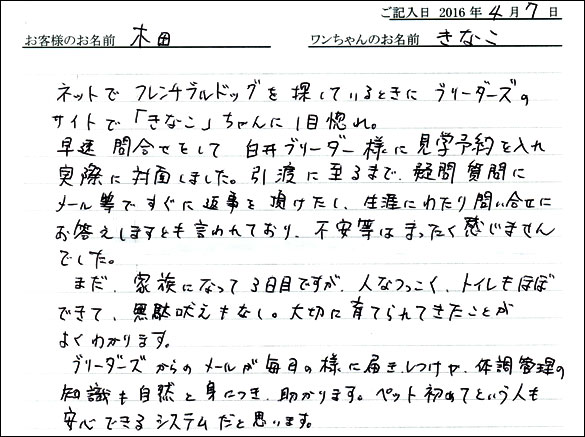 ご記入日 2016 年 4 月 7 日
お客様のお名前 木田 ワンちゃんのお名前 きなこ
ネットで フレンチブルドッグを 探しているときに ブリーダーズの
サイトで「きなこ」ちゃんに 1目惚れ。
早速 問合せをして 臼井ブリーダー様に 見学予約を入れ
実際に 対面しました。引渡に 至るまで、疑問質問に
メール等ですぐに返事を頂けたし、生涯にわたり問い合せに
お答えしますとも言われており、不安等は まったく感じません
でした。
まだ、家族になって 3日目ですが、人なつっこく、トイレもほぼ
できて、無駄吠えもなし。大切に育てられてきたことが
よくわかります。
ブリーダーズからのメールが毎日の様に届き、しつけや、体調管理の
知識も自然と身につき、助かります。ペット初めてという人も
安心できるシステムだと思います。